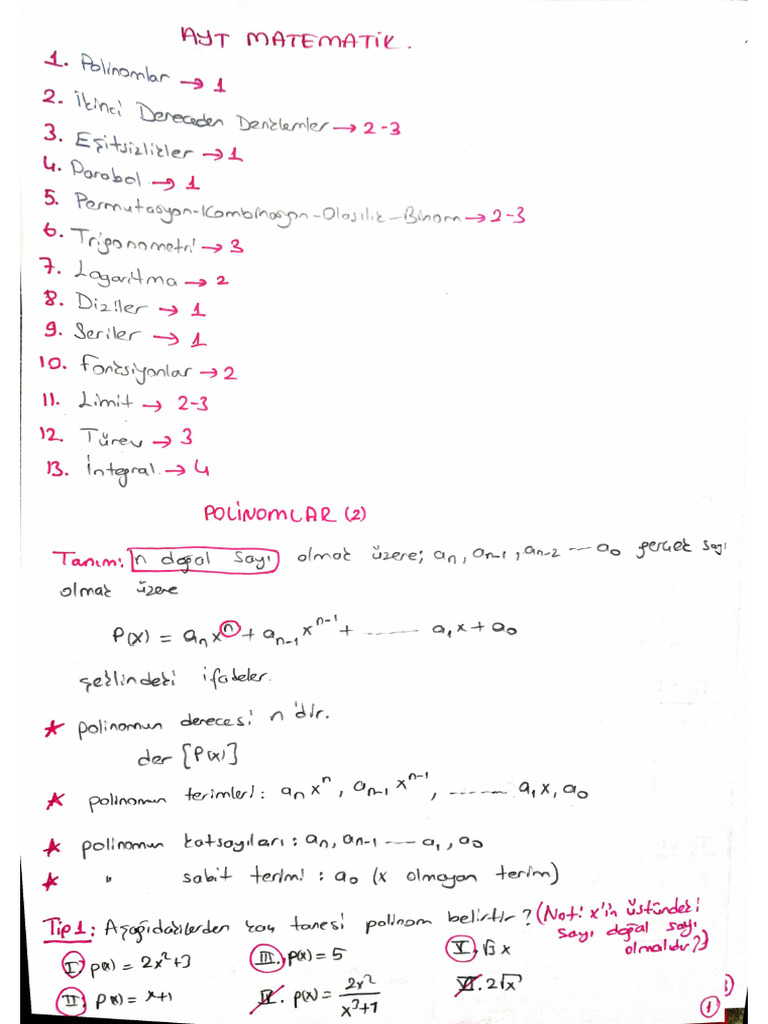 AYT MATEMATİK.
1. Polinomlar → 1
2. İkinci Dereceden Denklemler → 2-3
3. Eşitsizlikler → 1
4. Parabol → 1
5. Permutasyon-Kombinasyon-Olasılık-Binom → 2-3
6. Trigonometri → 3
7. Logaritma → 2
8. Diziler → 1
9. Seriler → 1
10. Fonksiyonlar → 2
11. Limit → 2-3
12. Türev → 3
13. İntegral → 4
POLİNOMLAR (2)
Tanım: n doğal sayı olmak üzere; aₙ, aₙ₋₁, aₙ₋₂ --- a₀ gerçek sayı
olmak üzere
P(x) = aₙxⁿ + aₙ₋₁xⁿ⁻¹ + ........ a₁x + a₀
şeklindeki ifadeler.
★ polinomun derecesi n'dir.
der [P(x)]
★ polinomun terimleri : aₙxⁿ, aₙ₋₁xⁿ⁻¹, ........ a₁x, a₀
★ polinomun katsayıları : aₙ, aₙ₋₁ ---- a₁, a₀
★ " sabit terimi : a₀ (x olmayan terim)
Tip 1 : Aşağıdakilerden kaç tanesi polinom belirtir? (Not: x'in üstündeki sayı doğal sayı olmalıdır?)
I. p(x) = 2x²+3 III. p(x) = 5 V. √3 x
II. p(x) = x+1 IV. p(x) = 2x²/(x³+1) VI. 2√x
1